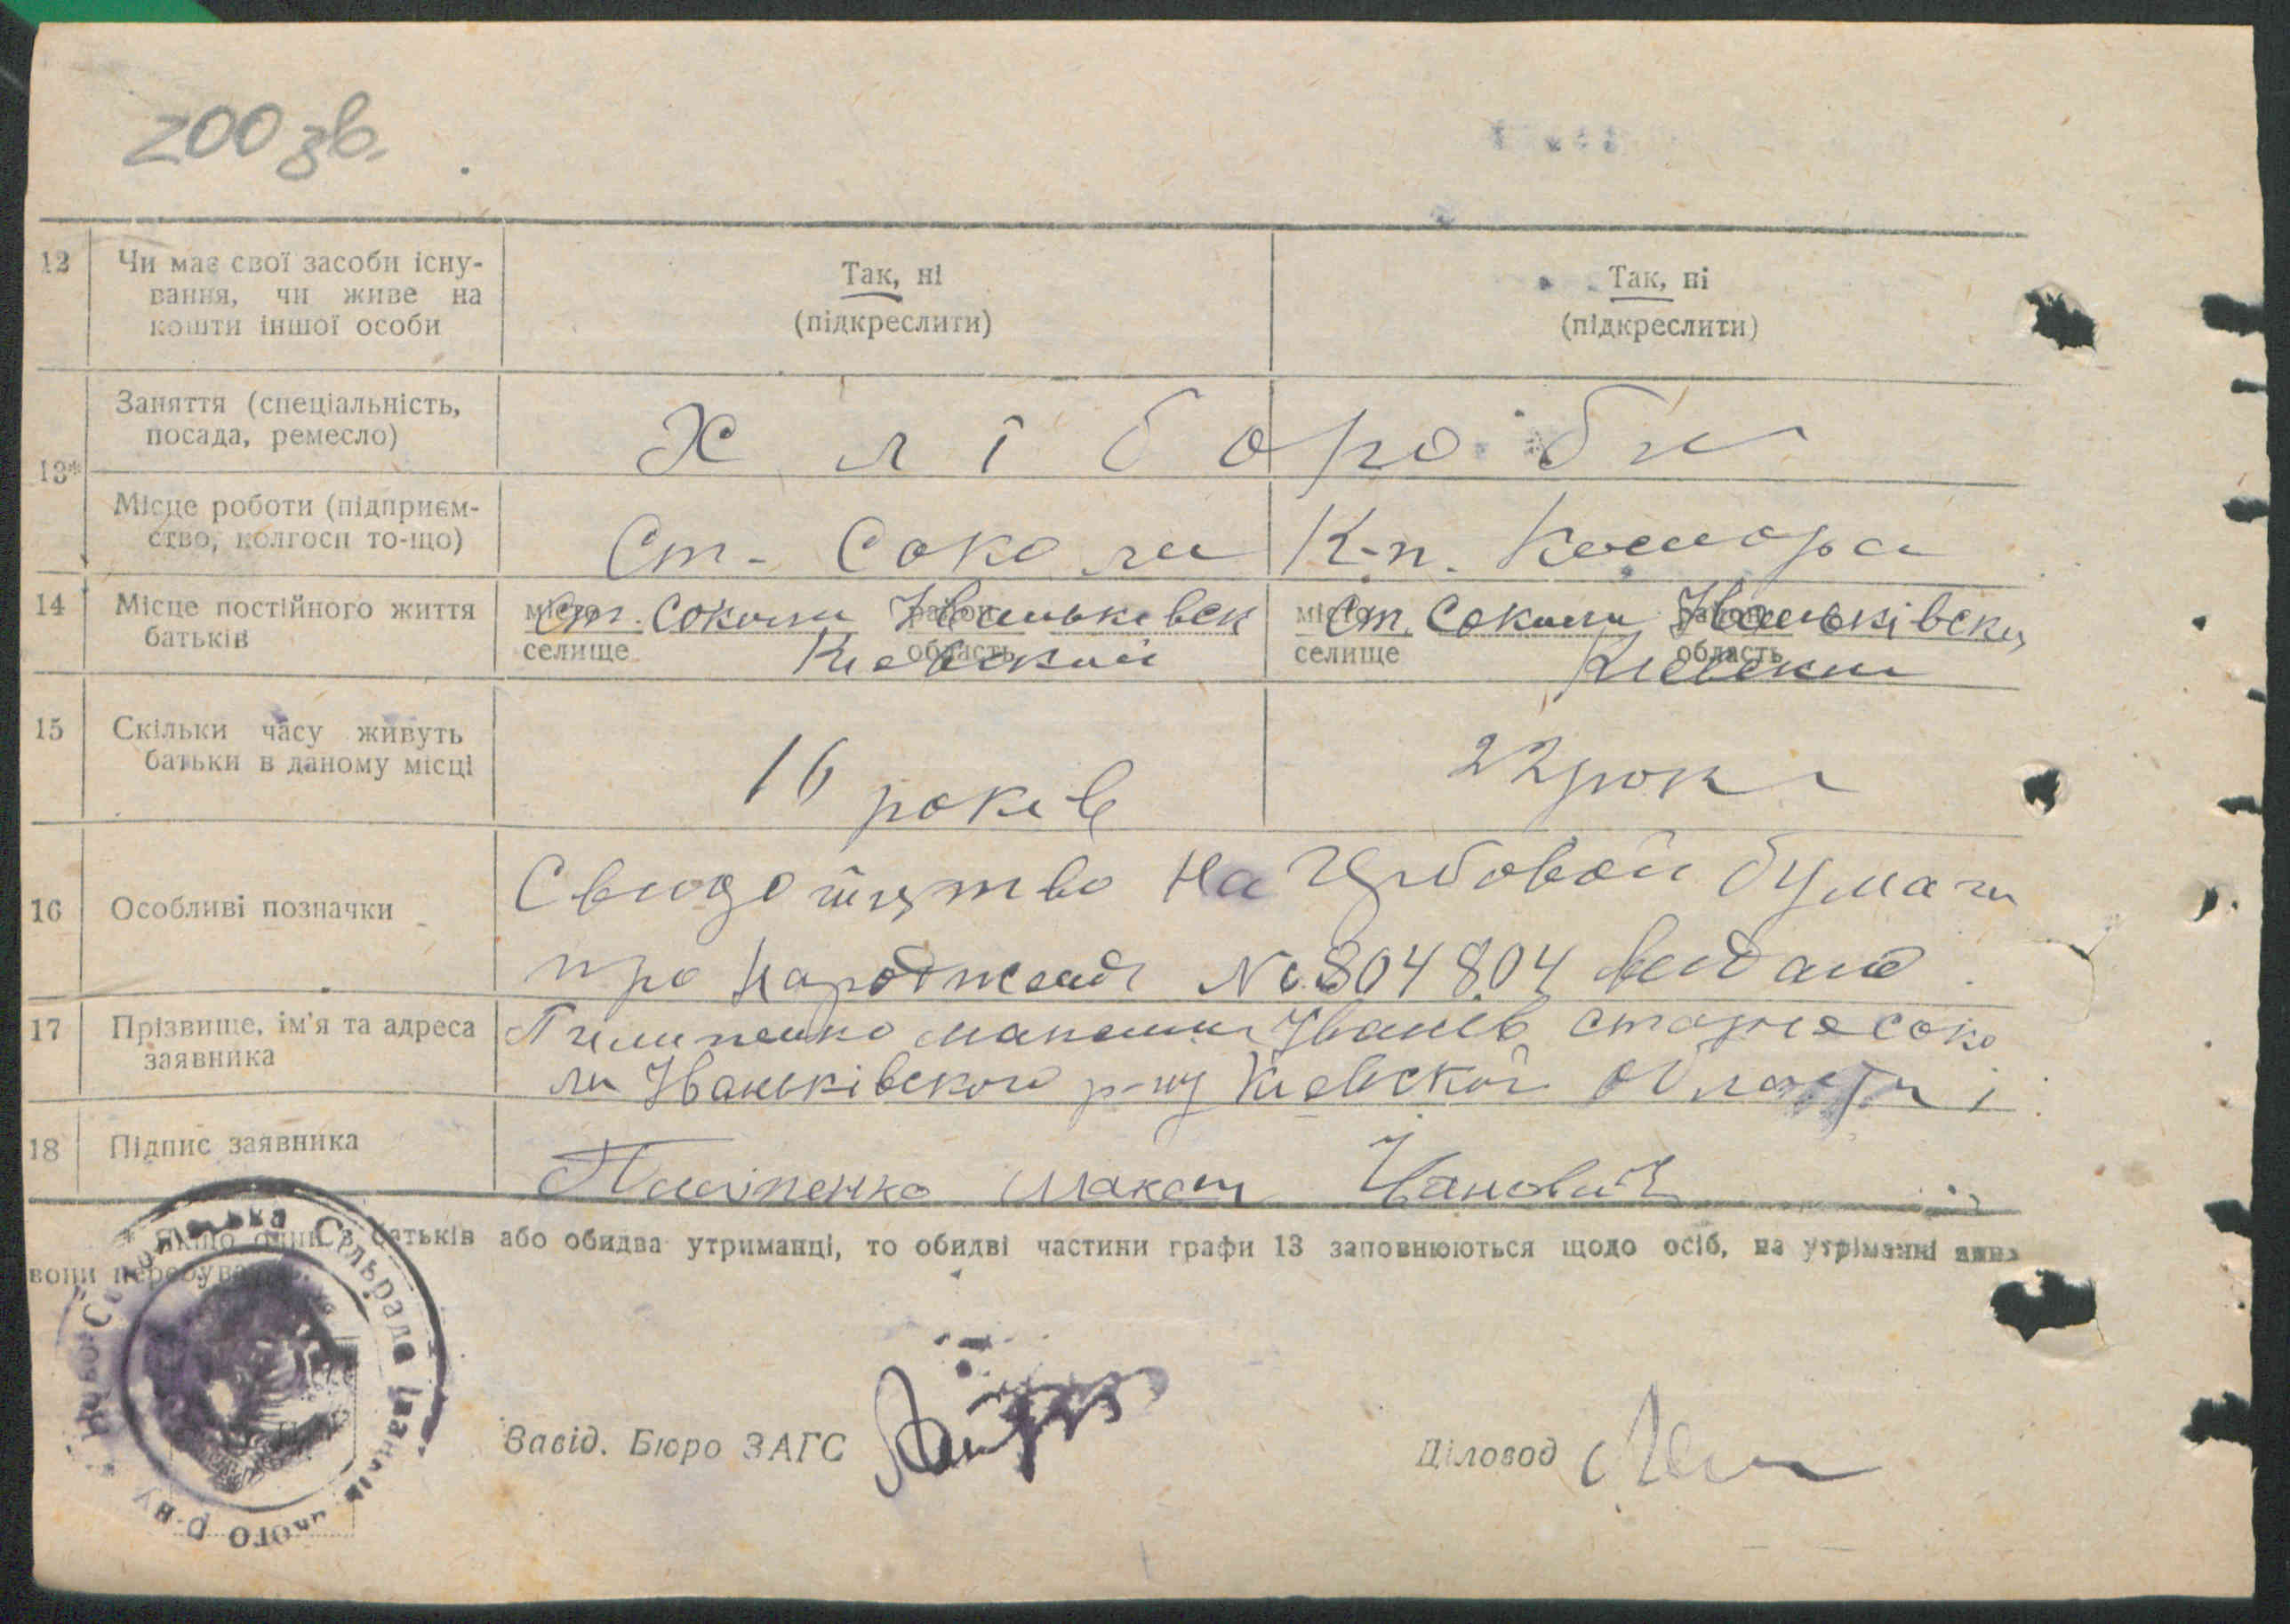 200 зв.
12 Чи має свої засоби існу-
вання, чи живе на
кошти іншої особи
Так, ні
(підкреслити)
Так, ні
(підкреслити)
13*
Заняття (спеціальність,
посада, ремесло)
Хлібороби
Місце роботи (підприєм-
ство, колгосп то-що)
Ст. Соколи
К-п.
14 Місце постійного життя
батьків
місто Ст. Соколи район
селище область Киевский
місто Ст. Соколи район
селище область Киевски
15 Скільки часу живуть
батьки в даному місці
16 років
22 роки
16 Особливі позначки
на гербовой бумаги
про народження № 304804 видано
17 Прізвище, ім'я та адреса
заявника
Пилипенко старесоко
ли Іваньківского р-ну Киевской області
18 Підпис заявника
Пилипенко Максим Іванович
* Якщо один з батьків або обидва утриманці, то обидві частини графи 13 заповнюються щодо осіб, на утриманні яких
вони перебувають.
Сільрада Іванківського р-ну
Завід. Бюро ЗАГС
Діловод